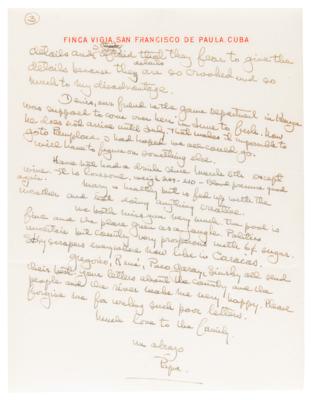 3
FINCA VIGIA, SAN FRANCISCO DE PAULA, CUBA
details and I think they fear to give the
details because they are so crooked and so
much to my disadvantage.
Denis, our friend in the game department in Kenya
was supposed to come over here in June to fish. Now
he can't arrive until July. That makes it impossible to
go to Pamplona. I had hoped we all could go.
Will have to figure on something else.
Have not had a drink since March 5th except
wine. It is lonesome. Weight 210 - Blood pressure good
again.
Mary is healthy but is fed up with the
weather and not doing anything creative.
We both miss you very much. The pool is
fine and the place green as a jungle. Politics
uncertain but country very prosperous with 6¢ sugar.
Sky scrapers everywhere now like in Caracas.
Gregorio, René, Paco Garay, Sinsky all send
their best. Your letters about the country and the
people and the river make me very happy. Please
forgive me for writing such poor letters.
Much love to the family.
un abrazo
Papa